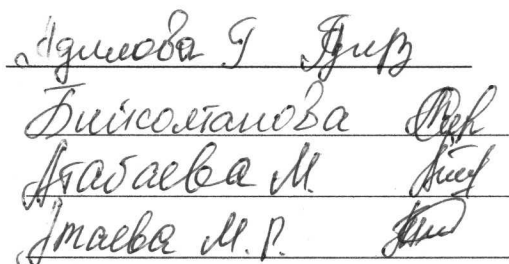 Адилова Г
Бийсолтанова
Атабаева М.
Атаева М.Г.